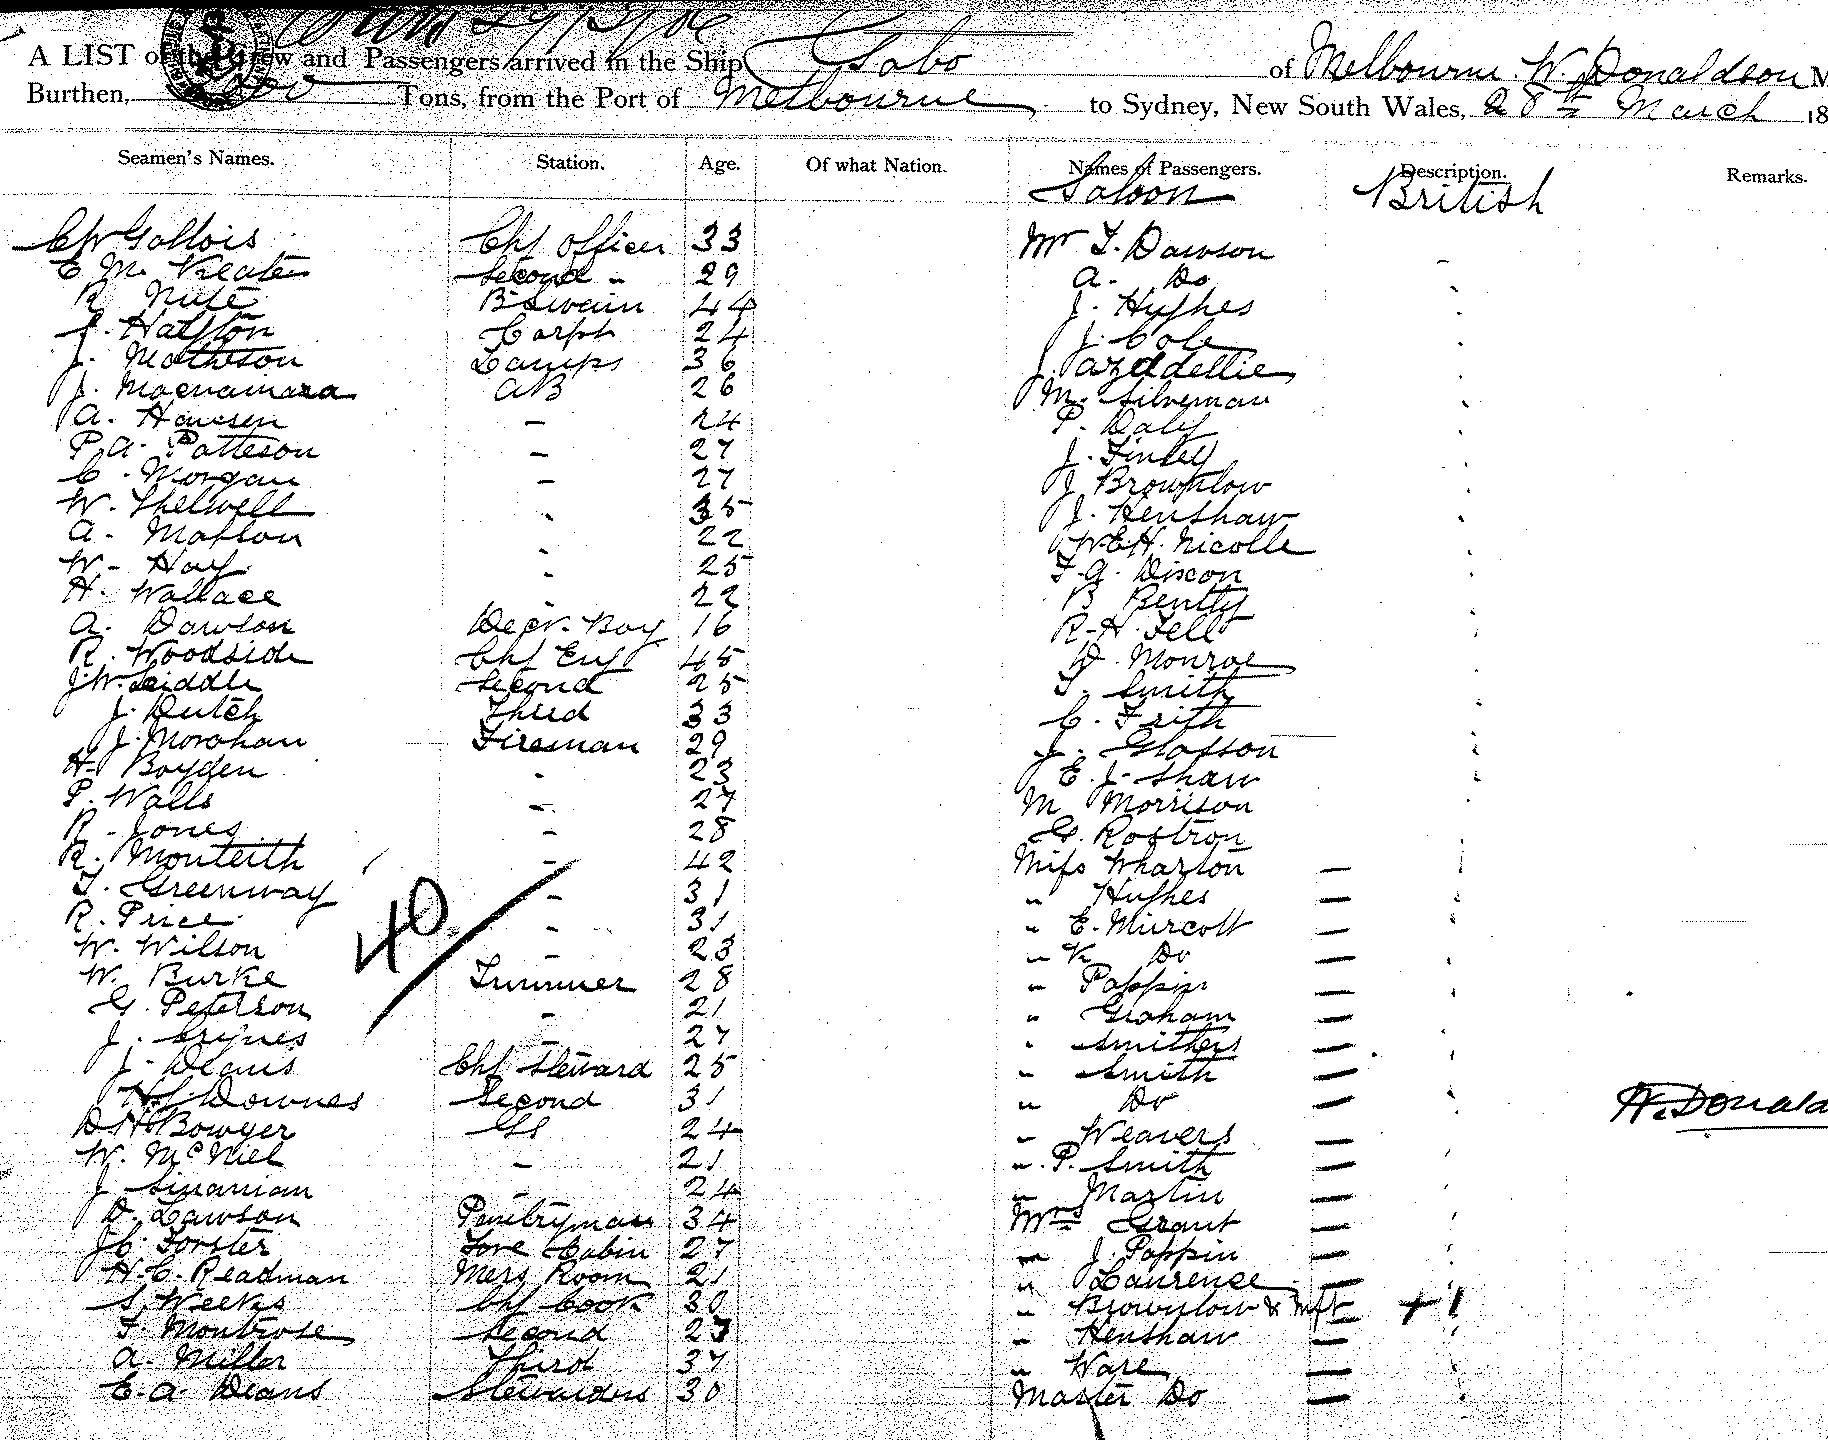 A LIST of the Crew and Passengers arrived in the Ship Gabo of Melbourne W. Donaldson M
Burthen, Tons, from the Port of Melbourne to Sydney, New South Wales, 28th March 18
Seamen's Names. Station. Age. Of what Nation. Names of Passengers. Description. Remarks.
Saloon British
Chf Officer 33 Mr T. Dawson
E. M. Second " 29 A. Do
R. Nute B'Swain 44 J. Hughes
Carptr 24 J. Cole
J. Matheson Lamps 36 J.
J. Macnamara AB 26 M. Silverman
A. Hansen - 24 P. Daly
P. A. Patteson - 27 J. Finley
C. Morgan - 27 J. Brownlow
W. Thelwell 35 J. Henshaw
A. 22 W.E.H. Nicolle
W. Hay 25 F. A. Dixon
H. Wallace 22 B Bently
A. Dawson Deck Boy 16 R. H. Fell
R. Woodside Chf Eng 45 D. Monroe
J.W. Liddle Second 25 T. Smith
J. Dutch Third 33 C. Frith
J. Morahan Fireman 29 J. Glasson
H. Boyden - 23 E. J. Shaw
P. Walls - 27 M Morrison
R. Jones - 28 G. Rostron
R. Monteith - 42 Miss Wharton —
T. Greenway - 31 " Hughes —
R. Price - 31 " E. Murcott —
W. Wilson - 23 " K Do —
W. Burke Trimmer 28 " Poppin —
G. Peterson - 21 " Graham —
J. - 27 " Smithers —
J. Deans Chf Steward 25 " Smith —
H.J. Downes Second 31 " Do —
D H Bowyer GS 24 " Weavers —
W. McNiel - 21 " P. Smith —
J - 24 " Martin —
D. Lawson Pantryman 34 Mrs Grant —
J.C. Forster Fore Cabin 27 " J. Poppin —
H. C. Readman Mess Room 21 " Laurence —
S. Weeks Chf Cook 30 " Brownlow & Inft + 1
T. Montrose Second 23 " Henshaw —
A. Miller Third 37 " Ware —
E. A. Deans Stewardess 30 Master Do —
40
W. Donald